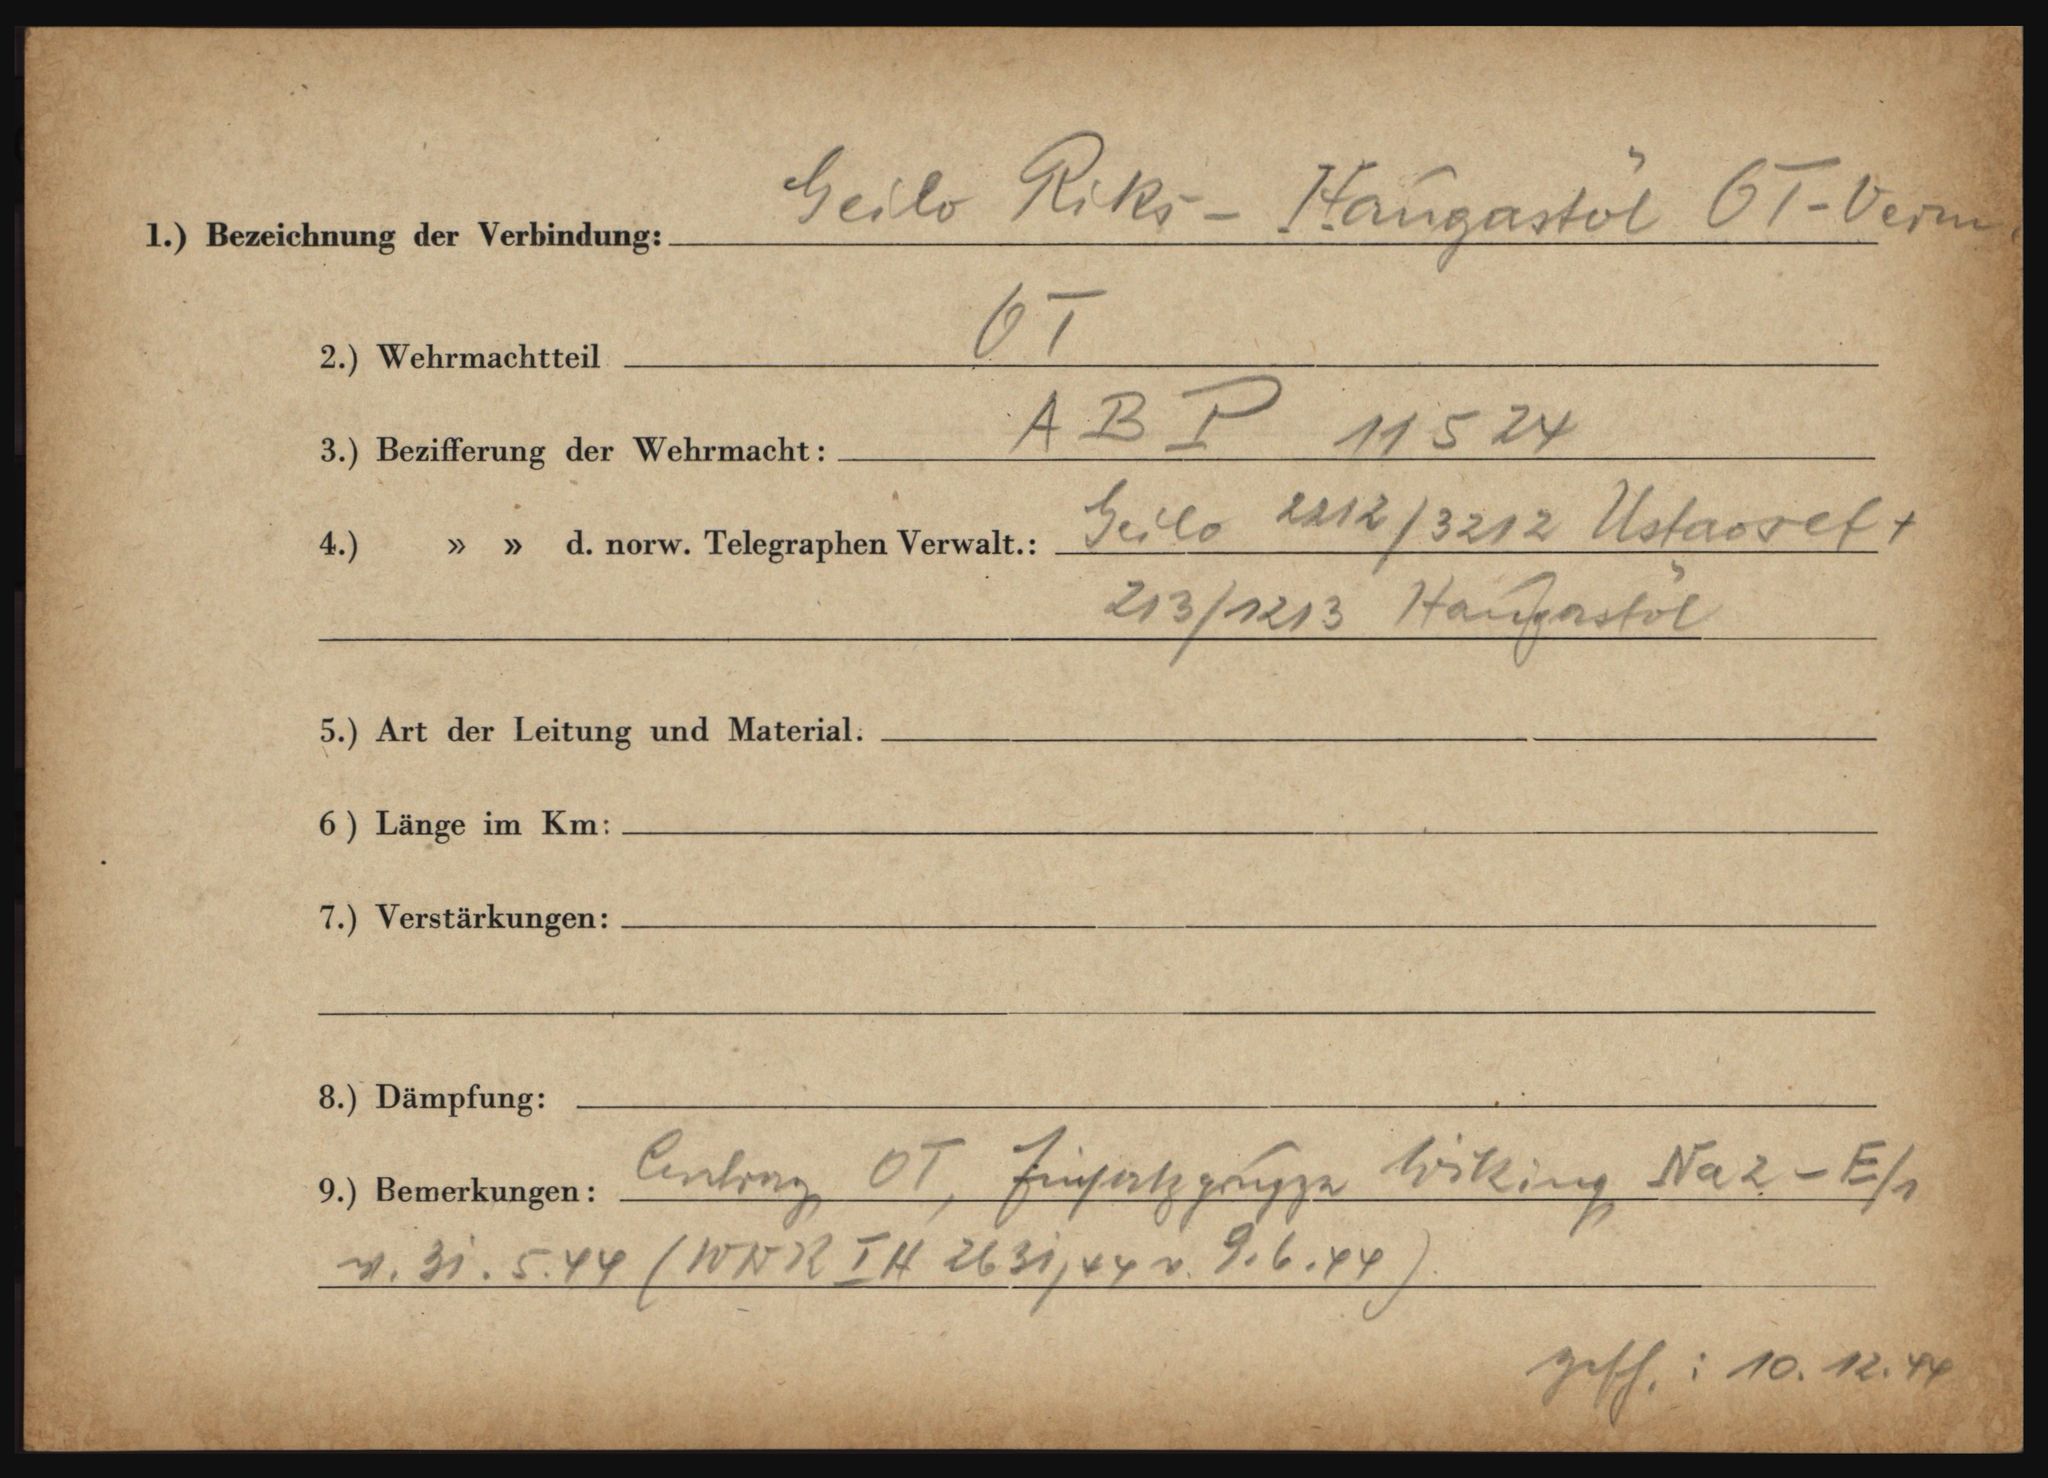 1.) Bezeichnung der Verbindung: Geilo Riks - Haugastöl OT-Verm.
2.) Wehrmachtteil OT
3.) Bezifferung der Wehrmacht: A B P 11524
4.) » » d. norw. Telegraphen Verwalt.: Geilo 2212/3212 Ustaoset +
213/1213 Haugastöl
5.) Art der Leitung und Material.
6 ) Länge im Km:
7.) Verstärkungen:
8.) Dämpfung:
9.) Bemerkungen: Antrag OT, Einsatzgruppe Wiking Na2 - E/s
v. 31.5.44 (WNK I H 2631/44 v. 9.6.44)
gesch.: 10.12.44